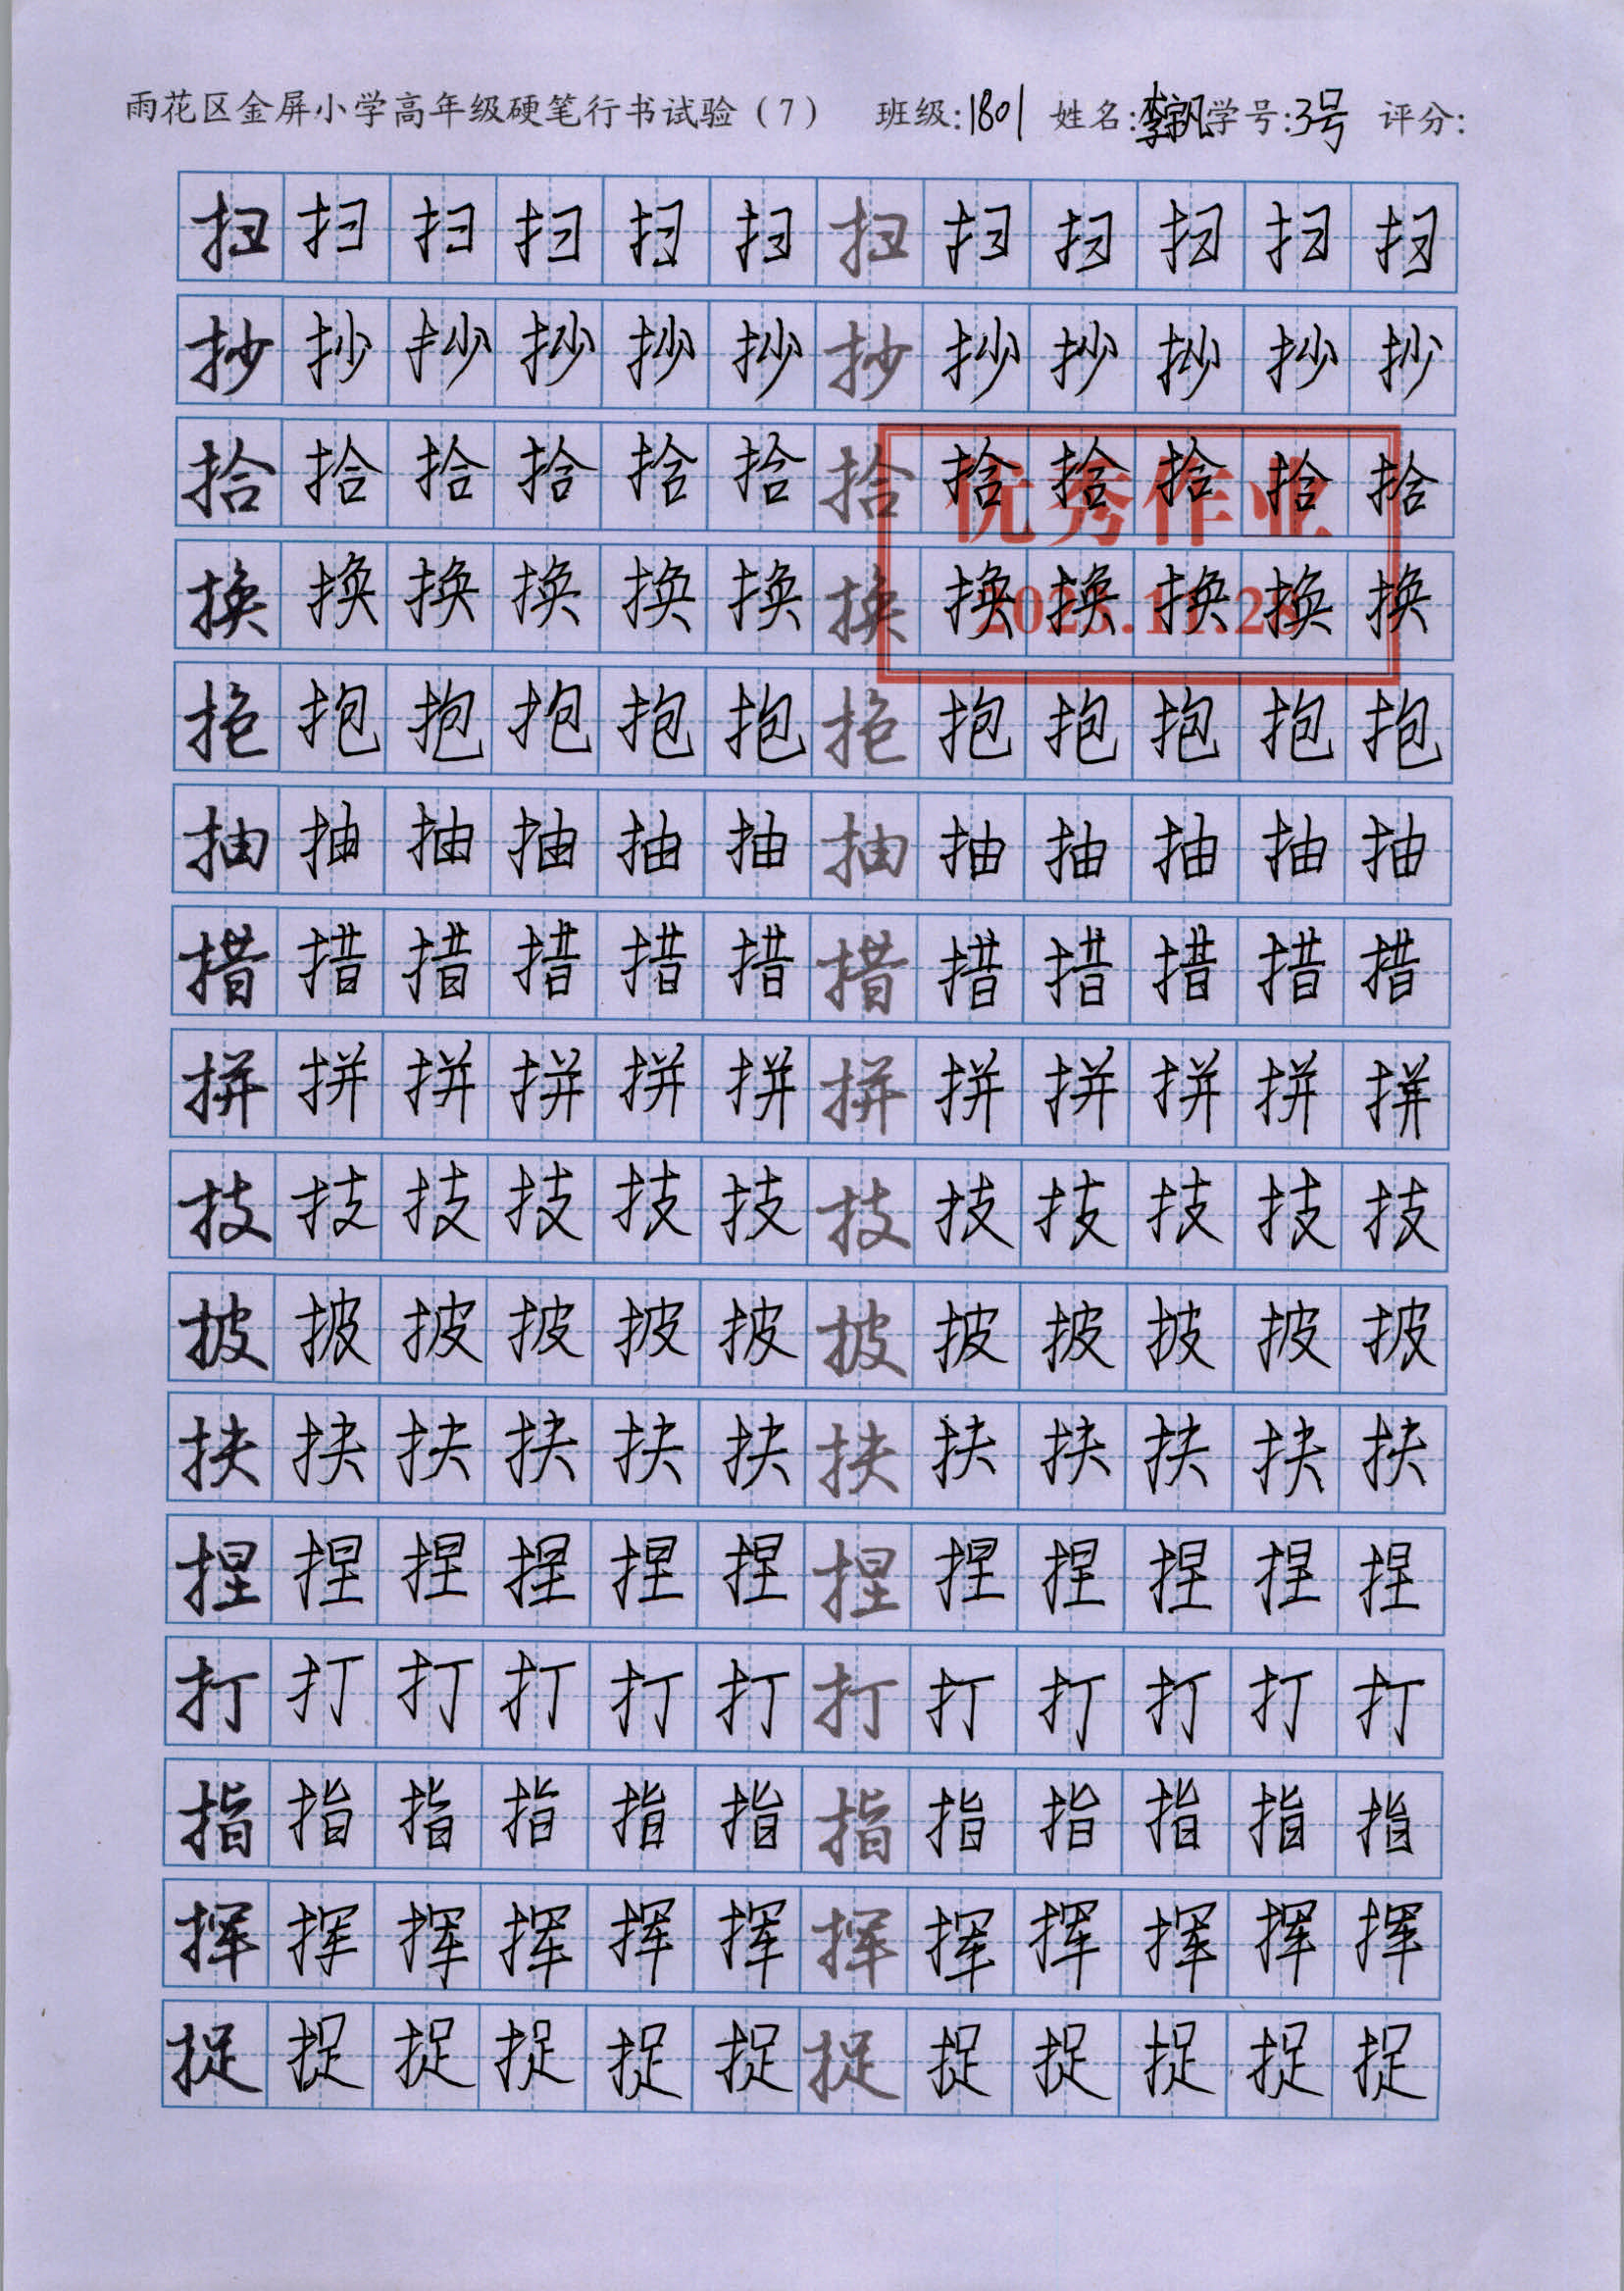 雨花区金屏小学高年级硬笔行书试验（7） 班级:1801 姓名:李宇凡 学号:3号 评分:
扫扫扫扫扫扫扫扫扫扫扫扫
抄抄抄抄抄抄抄抄抄抄抄抄
拾拾拾拾拾拾拾拾拾拾拾拾
优秀作业
换换换换换换换换换换换换
抱抱抱抱抱抱抱抱抱抱抱抱
抽抽抽抽抽抽抽抽抽抽抽抽
措措措措措措措措措措措措
拼拼拼拼拼拼拼拼拼拼拼拼
技技技技技技技技技技技技
披披披披披披披披披披披披
扶扶扶扶扶扶扶扶扶扶扶扶
捏捏捏捏捏捏捏捏捏捏捏捏
打打打打打打打打打打打打
指指指指指指指指指指指指
挥挥挥挥挥挥挥挥挥挥挥挥
捉捉捉捉捉捉捉捉捉捉捉捉